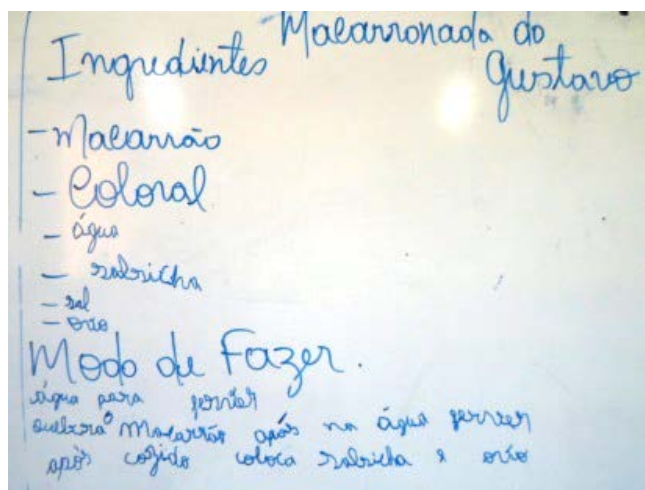 Macarronada do
Gustavo
Ingredientes
- Macarrão
- Coloral
- água
- salsicha
- sal
- ovo
Modo de Fazer.
água para ferver
quebra o Macarrão após na água ferver
após cozido coloca salsicha e ovo